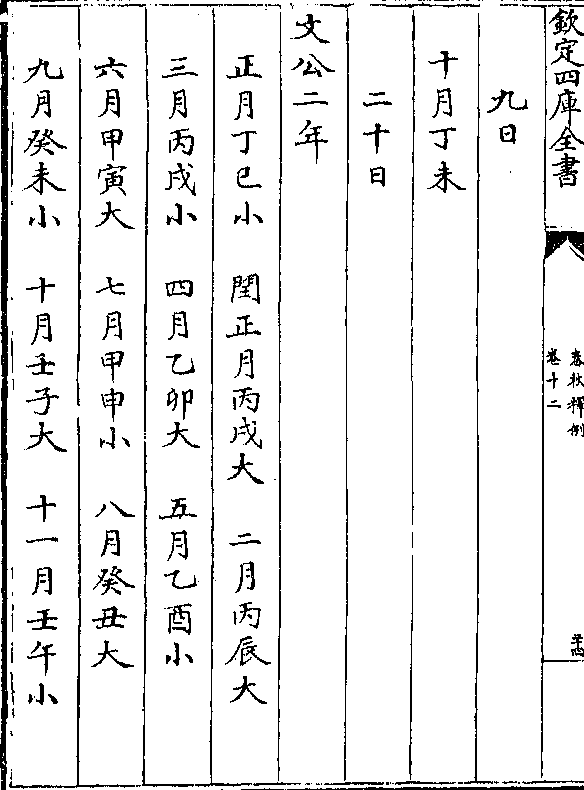 欽定四庫全書
春秋釋例
卷十二
九日
十月丁未
二十日
文公二年
正月丁巳小 閏正月丙戌大 二月丙辰大
三月丙戌小 四月乙卯大 五月乙酉小
六月甲寅大 七月甲申小 八月癸丑大
九月癸未小 十月壬子大 十一月壬午小